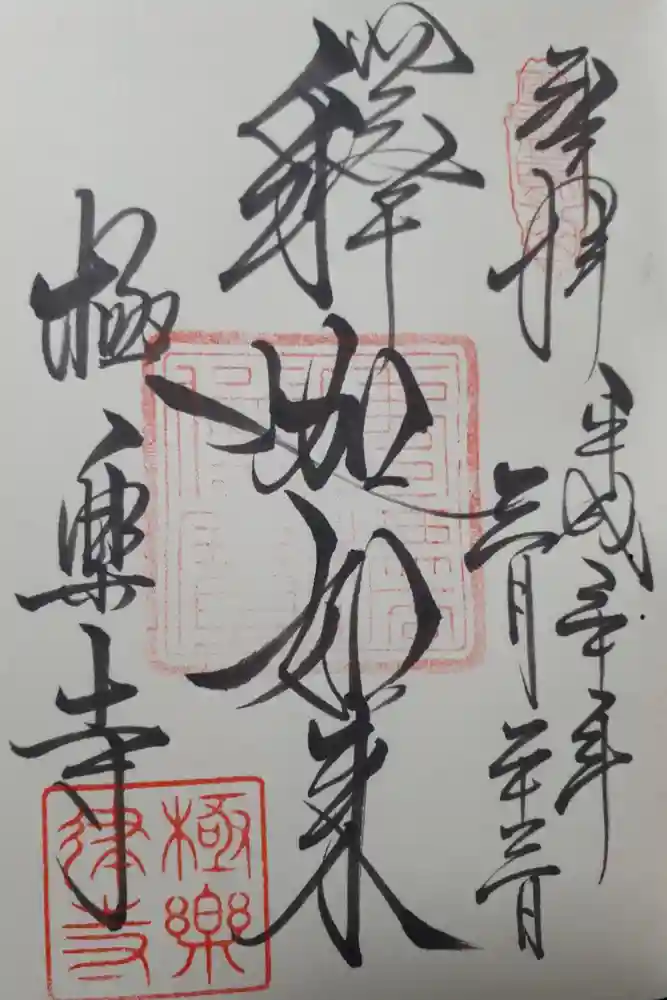 奉拝
平成三十年
六月二十三日
釋迦如来
極楽寺
極樂律寺